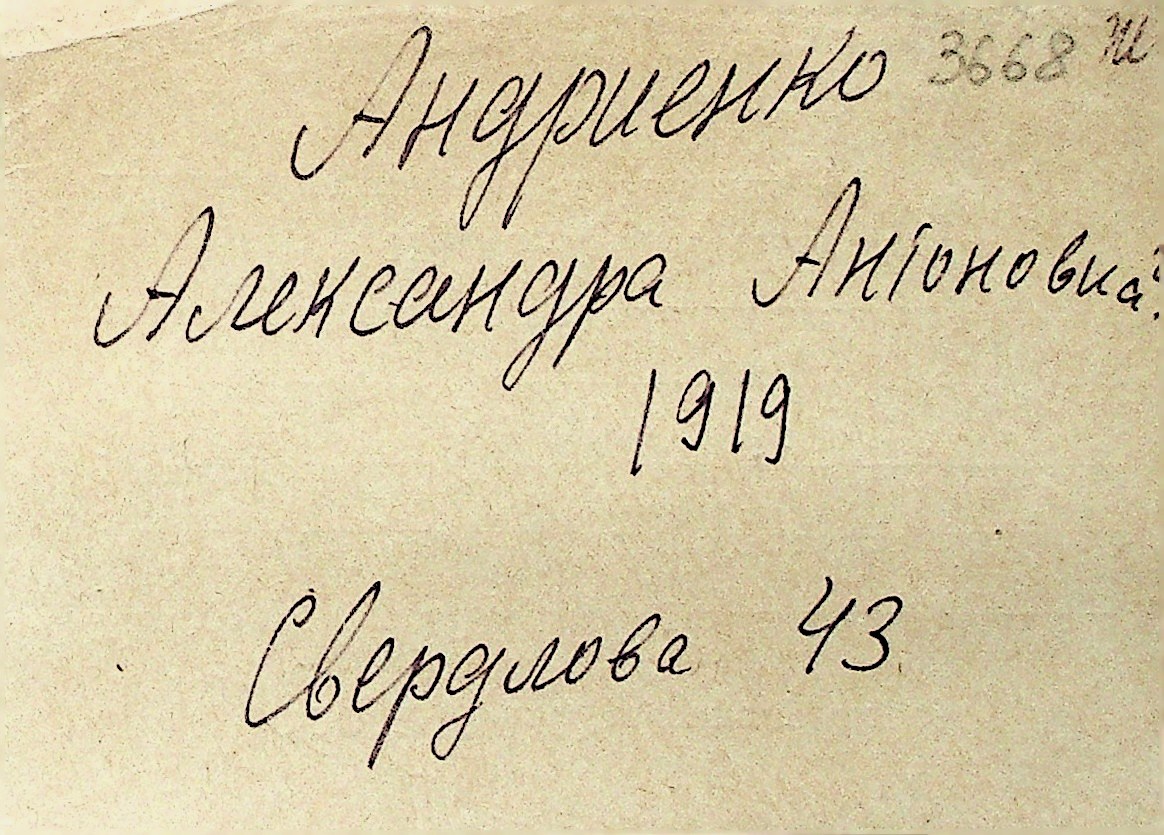 Андриенко 3668
Александра Антоновна
1919
Свердлова 43